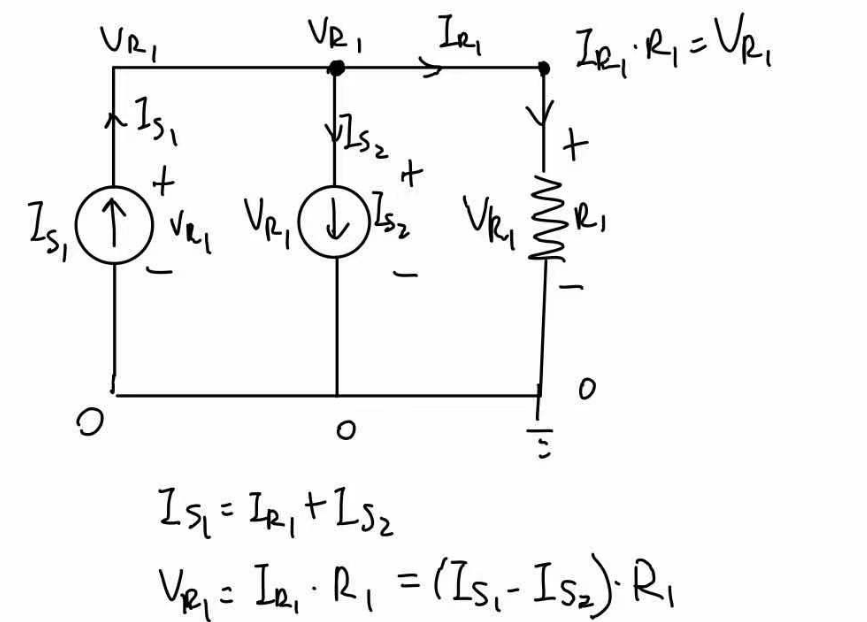 V_R1
V_R1
I_R1
I_R1 · R1 = V_R1
I_S1
I_S2
+
+
+
I_S1
V_R1
V_R1
I_S2
V_R1
R1
−
−
−
0
0
0
I_S1 = I_R1 + I_S2
V_R1 = I_R1 · R1 = (I_S1 - I_S2) · R1